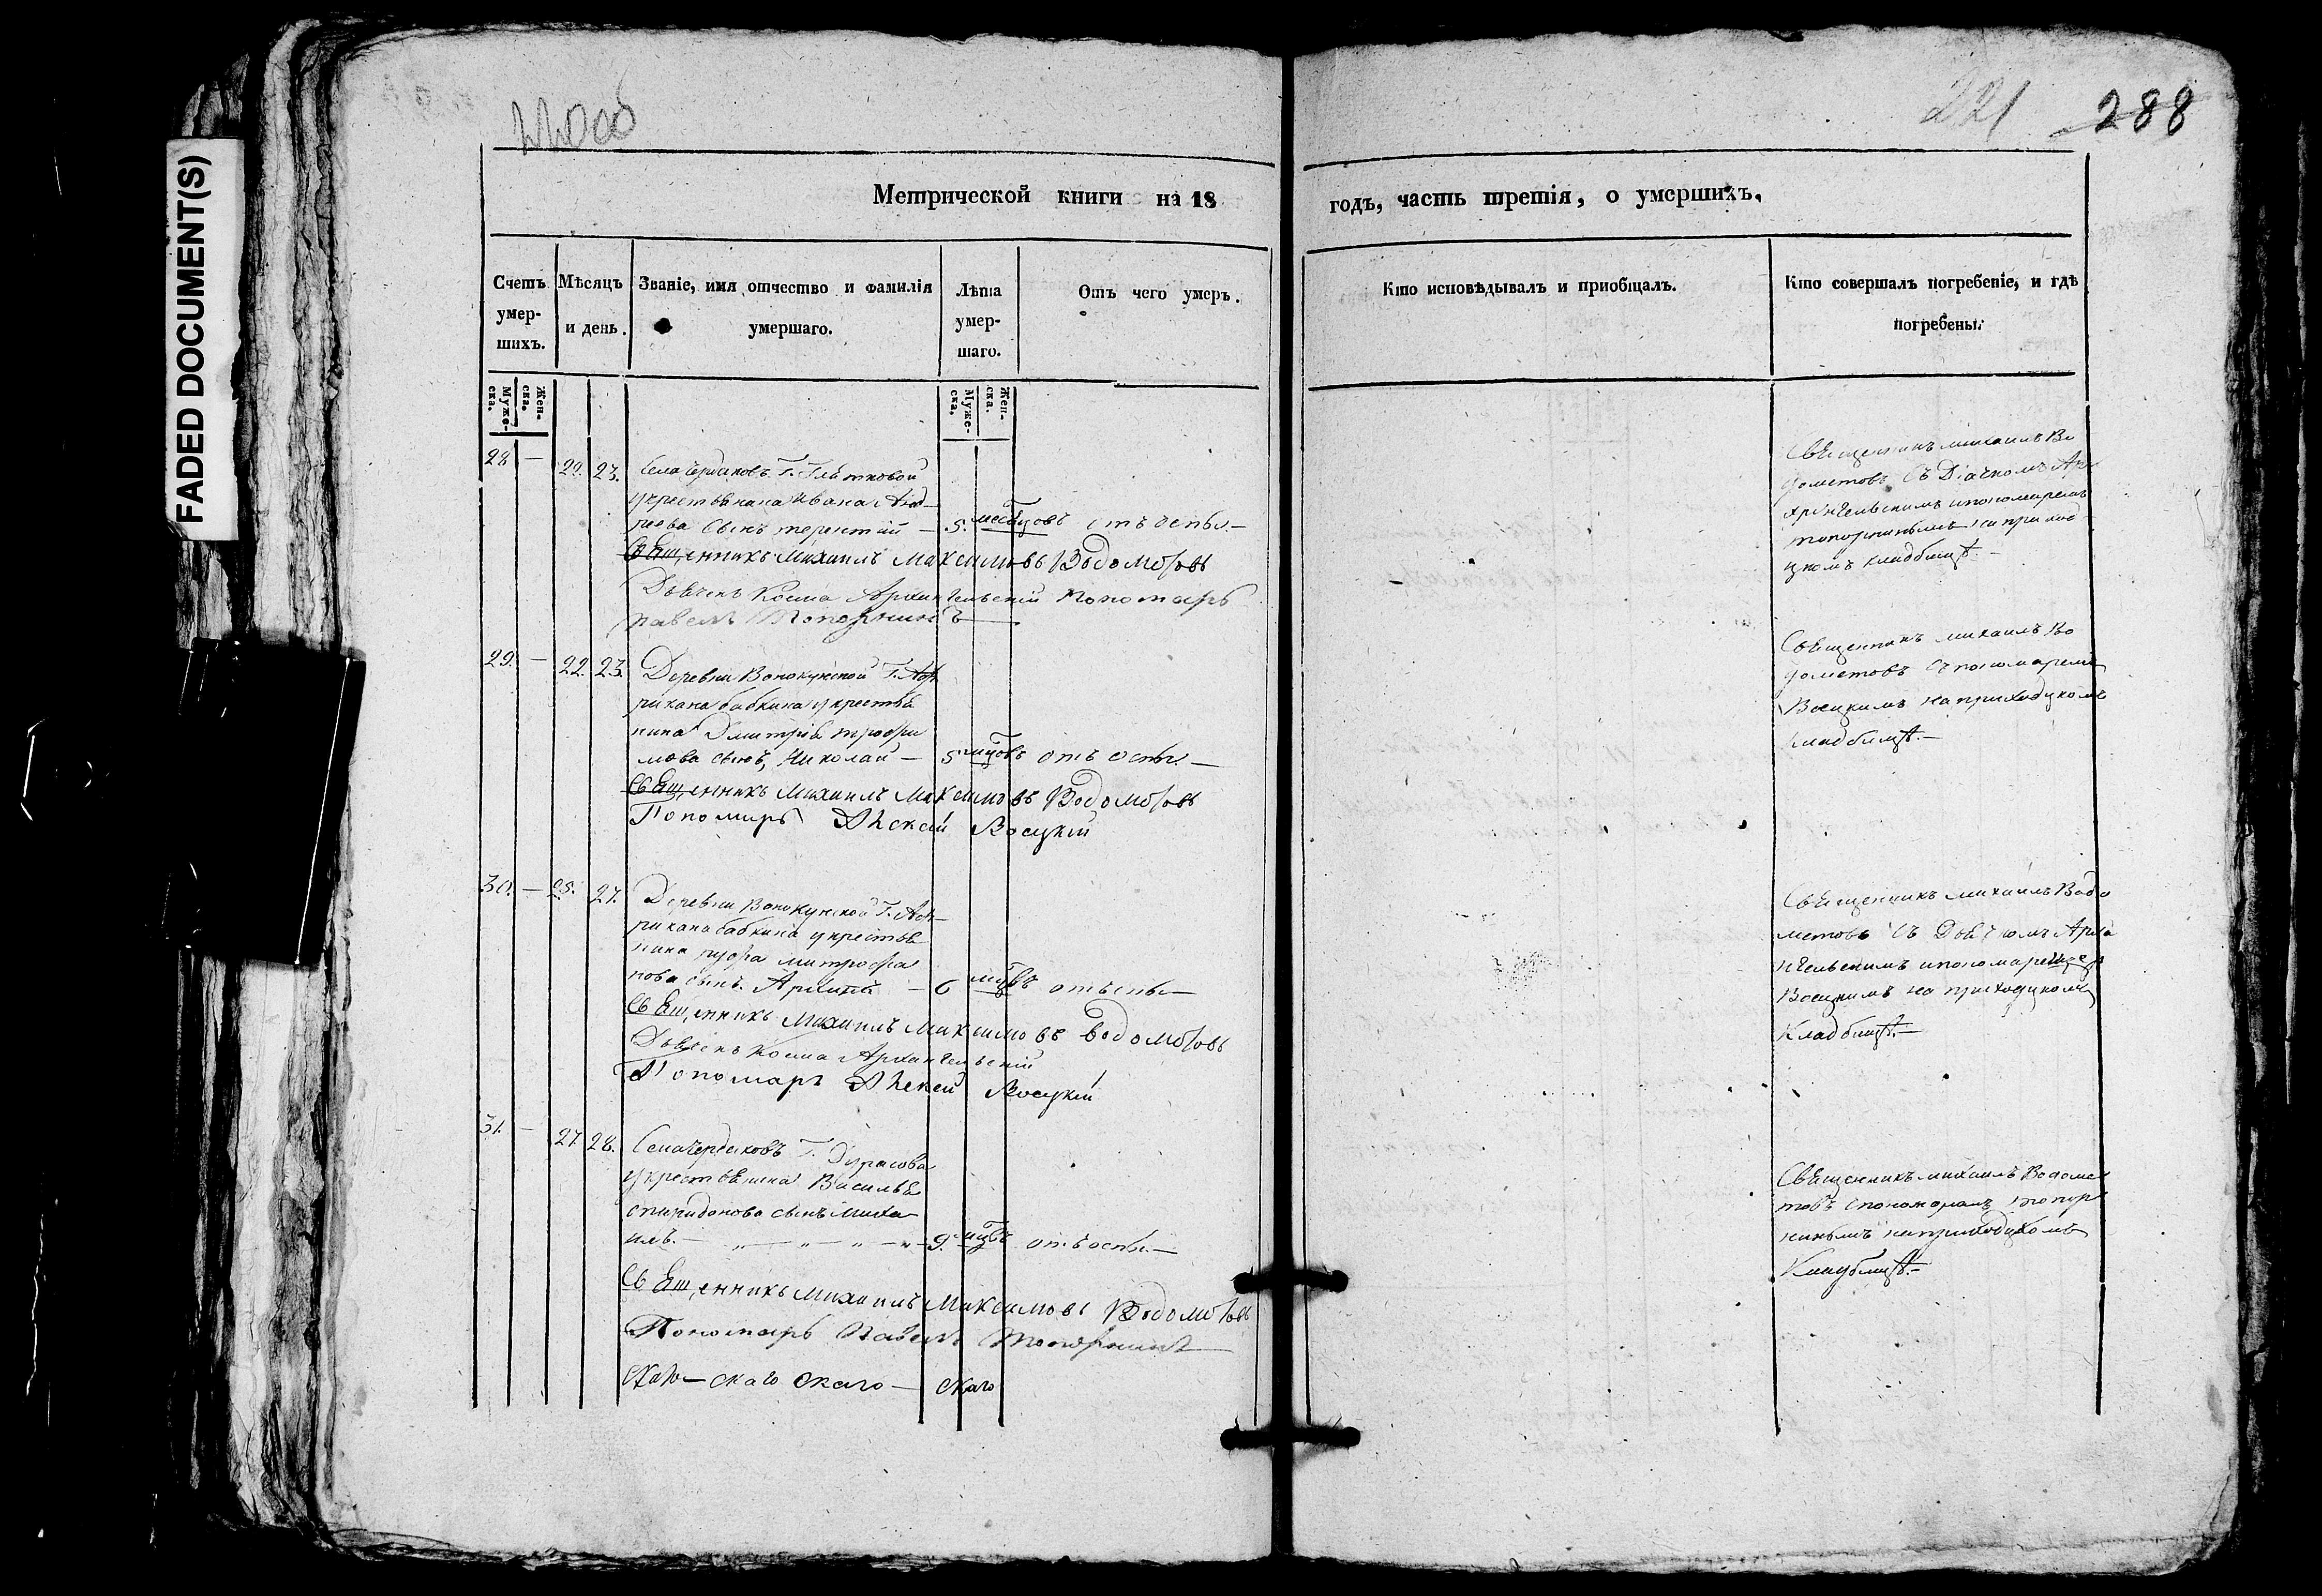 FADED DOCUMENT(S)
221 288
Метрической книги на 18
годъ, часть третія, о умершихъ.
Счетъ умер-шихъ.
Мѣсяцъ и день.
Званіе, имя отчество и фамилія умершаго.
Лѣта умер-шаго.
Отъ чего умеръ.
Кто исповѣдывалъ и пріобщалъ.
Кто совершалъ погребеніе, и гдѣ погребены.
Муже-ска.
Жен-ска.
Муже-ска.
Жен-ска.
28 — 20. 23. Села Чердаковъ Г.
у крестьянина Ивана Анд
реева сынъ терентій — 5. месяцовъ отъ оспы —
Священникъ Михаилъ Максимовъ Водометовъ
Дьячекъ Косма Архангельскій Пономарь
Павелъ Топорнинъ
Священникъ михаилъ Во
дометовъ съ Діачкомъ Ар
хангельскимъ и пономаремъ
топорнинымъ на приход
цкомъ кладбищѣ. —
29. — 22. 23. Деревни Г. Аф
рикана бабкина у крестья
нина Дмитрія трофи
мова сынъ, Николай — 5 мцовъ отъ оспы. —
Священникъ Михаилъ Максимовъ Водометовъ
Пономарь Алексей Восцкій
Священникъ михаилъ Во
дометовъ съ пономаремъ
Восцкимъ на приходцкомъ
кладбищѣ. —
30. — 25. 27. Деревни Г. Аф
рикана бабкина у крестья
нина митрофа
нова сынъ — 6 мцовъ отъ оспы —
Священникъ Михаилъ Максимовъ Водометовъ
Дьячекъ Косма Архангельскій
Пономарь Алексей Восцкій
Священникъ михаилъ Водо
метовъ съ Дьячкомъ Арха
нгельскимъ и пономаремъ
Восцкимъ на приходцкомъ
Кладбищѣ. —
31. — 27. 28. Села Чердаковъ Г. Дурасова
у крестьянина Василья
спиридонова сынъ Миха
илъ. — 9. мцовъ отъ оспы. —
Священникъ Михаилъ Максимовъ Водометовъ
Пономарь Павелъ Топорнинъ
скаго скаго — скаго
Священникъ михаилъ Водоме
товъ с пономаремъ топор
нинымъ на приходцкомъ
Кладбищѣ. —